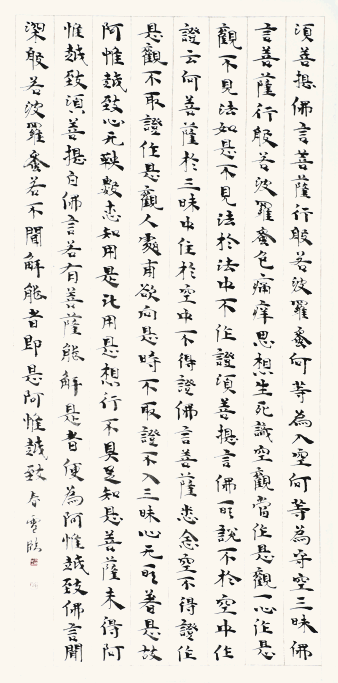 須菩提佛言菩薩行般若波羅蜜何等為入空何等為守空三昧佛
言菩薩行般若波羅蜜色痛痒思想生死識空觀當作是觀一心作是
觀不見法如是不見法於法中不作證須菩提言佛所說不於空中作
證云何菩薩於三昧中住於空中不得證佛言菩薩悉念空不得證作
是觀不取證作是觀入處甫欲向是時不取證不入三昧心无所著是故
阿惟越致心无軼數悉知用是比用是想行不具足知是菩薩未得阿
惟越致須菩提白佛言若有菩薩能解是者便為阿惟越致佛言聞
深般若波羅蜜若不聞解能者即是阿惟越致